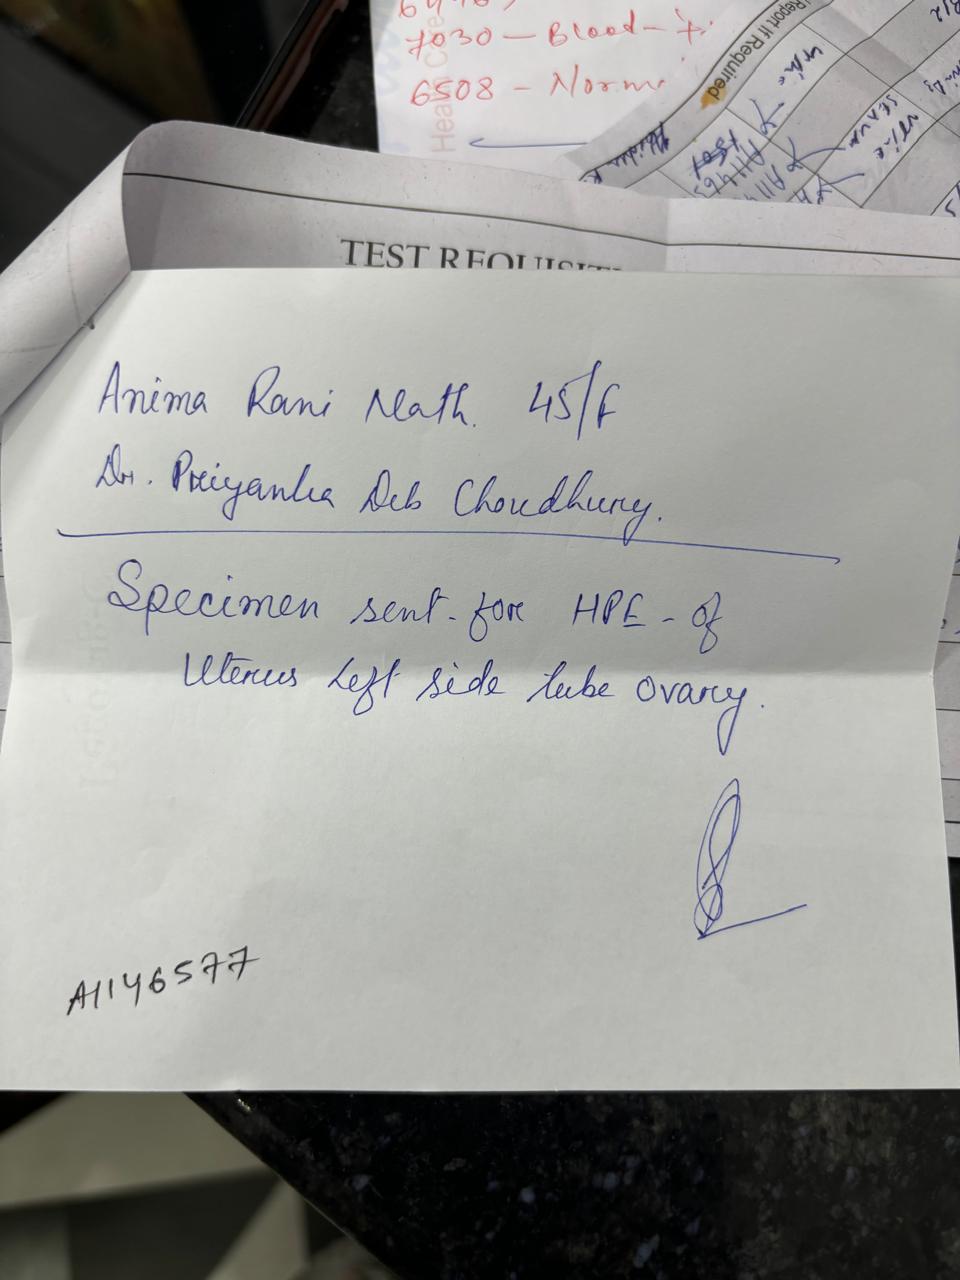 7030 - Blood -
6508 -
Report If Required
TEST REQUISIT
Anima Rani Nath. 45/F
Dr. Priyanka Deb Choudhury.
Specimen sent - for HPE - of
Uterus Left side tube ovary.
A1146577